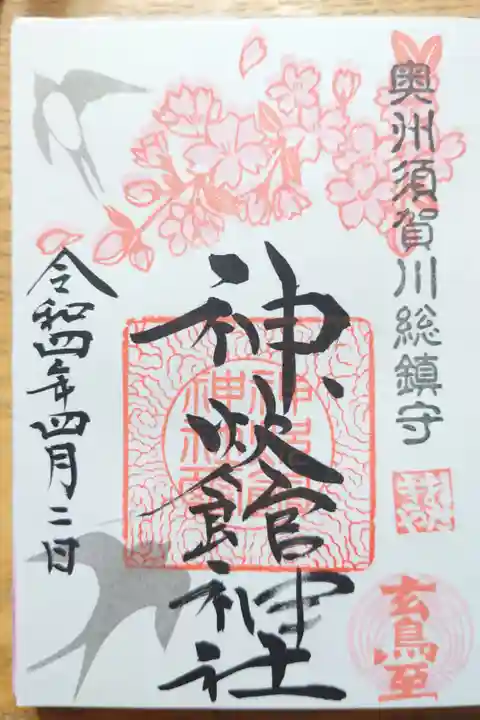 奥州須賀川総鎮守
玄鳥至
神炊館神社
令和四年四月二日